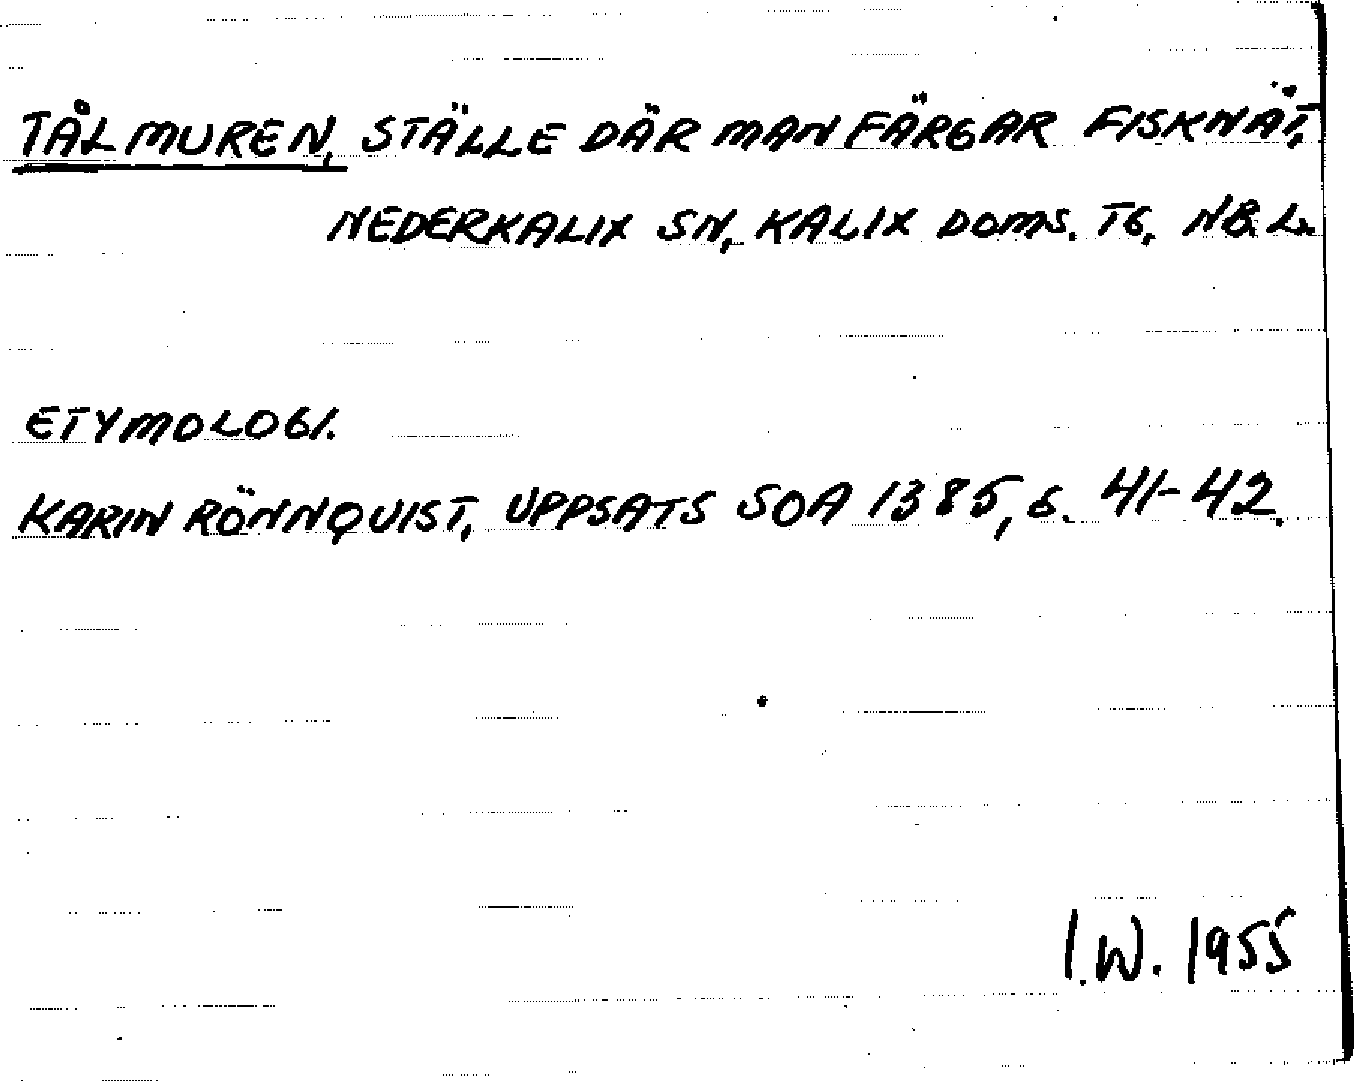 TÅLMUREN, STÄLLE DÄR MAN FÄRGAR FISKNÄT,
NEDERKALIX SN, KALIX DOMS. TG, NB. L.
ETYMOLOGI.
KARIN RÖNNQUIST, UPPSATS SOA 1385, s. 41-42.
I.W. 1955